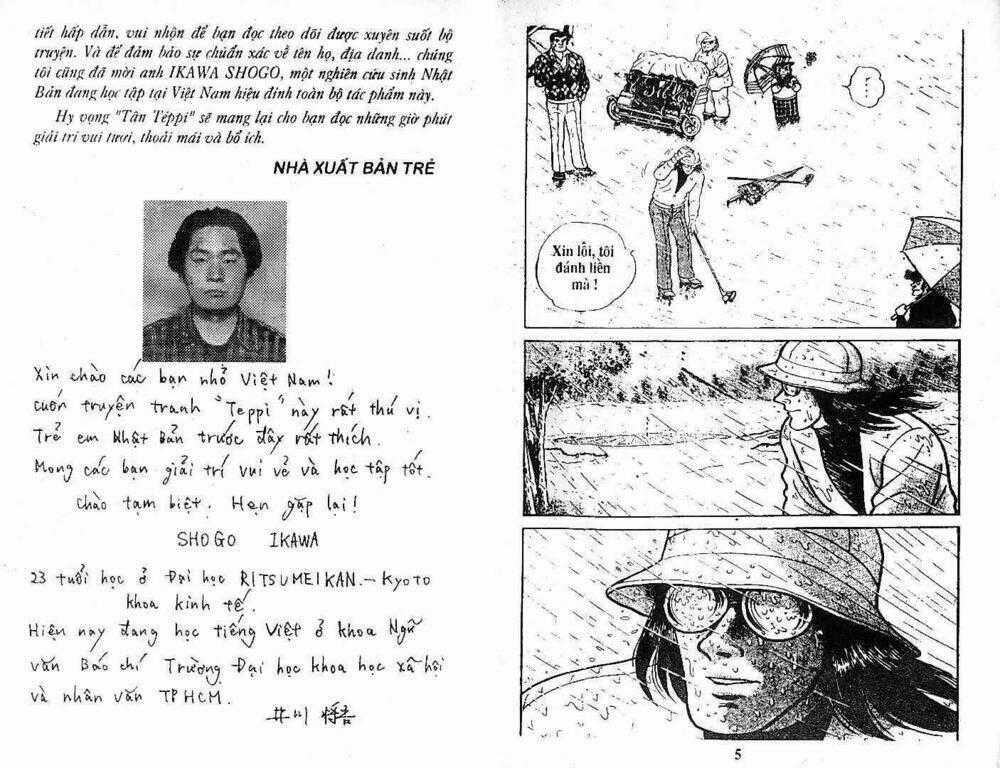 tiết hấp dẫn, vui nhộn để bạn đọc theo dõi được xuyên suốt bộ
truyện. Và để đảm bảo sự chuẩn xác về tên họ, địa danh... chúng
tôi cũng đã mời anh IKAWA SHOGO, một nghiên cứu sinh Nhật
Bản đang học tập tại Việt Nam hiệu đính toàn bộ tác phẩm này.
Hy vọng "Tân Têppi" sẽ mang lại cho bạn đọc những giờ phút
giải trí vui tươi, thoải mái và bổ ích.
NHÀ XUẤT BẢN TRẺ
Xin chào các bạn nhỏ Việt Nam!
cuốn truyện tranh "Teppi" này rất thú vị.
Trẻ em Nhật Bản trước đây rất thích.
Mong các bạn giải trí vui vẻ và học tập tốt.
chào tạm biệt. Hẹn gặp lại!
SHOGO IKAWA
23 tuổi học ở Đại học RITSUMEIKAN.-KYOTO
khoa kinh tế.
Hiện nay đang học tiếng Việt ở khoa Ngữ
văn Báo chí Trường Đại học khoa học xã hội
và nhân văn TPHCM.
井川 将吾
?
...
Xin lỗi, tôi
đánh liền
mà !
5